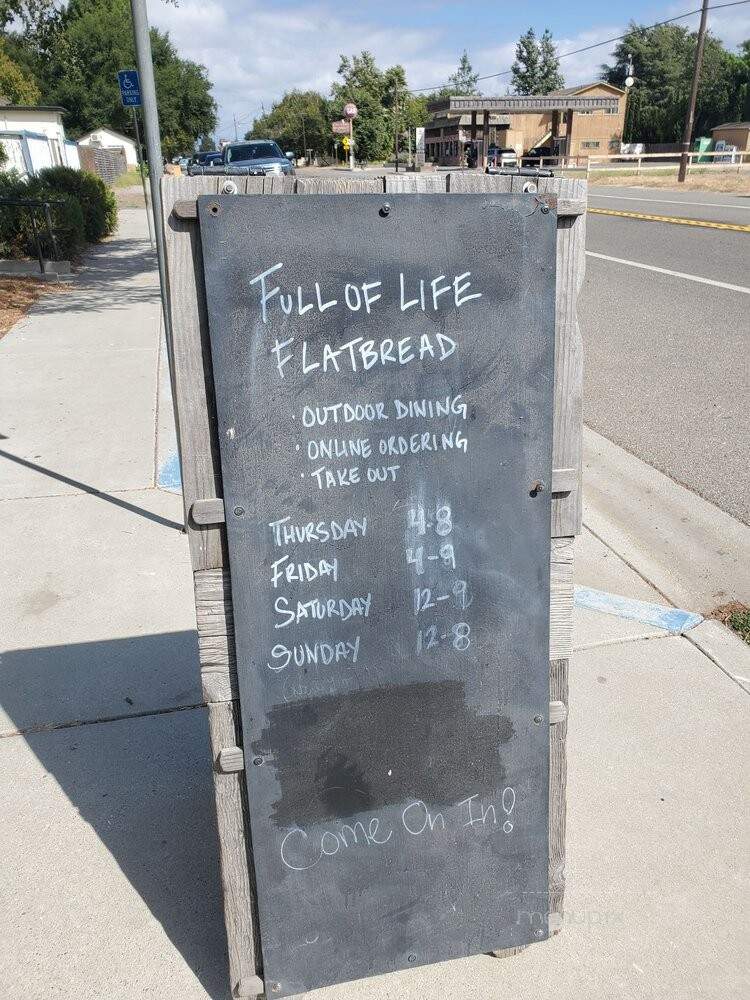 PARKING
ONLY
FULL OF LIFE
FLATBREAD
· OUTDOOR DINING
· ONLINE ORDERING
· TAKE OUT
THURSDAY 4-8
FRIDAY 4-9
SATURDAY 12-9
SUNDAY 12-8
Come On In!
menupix